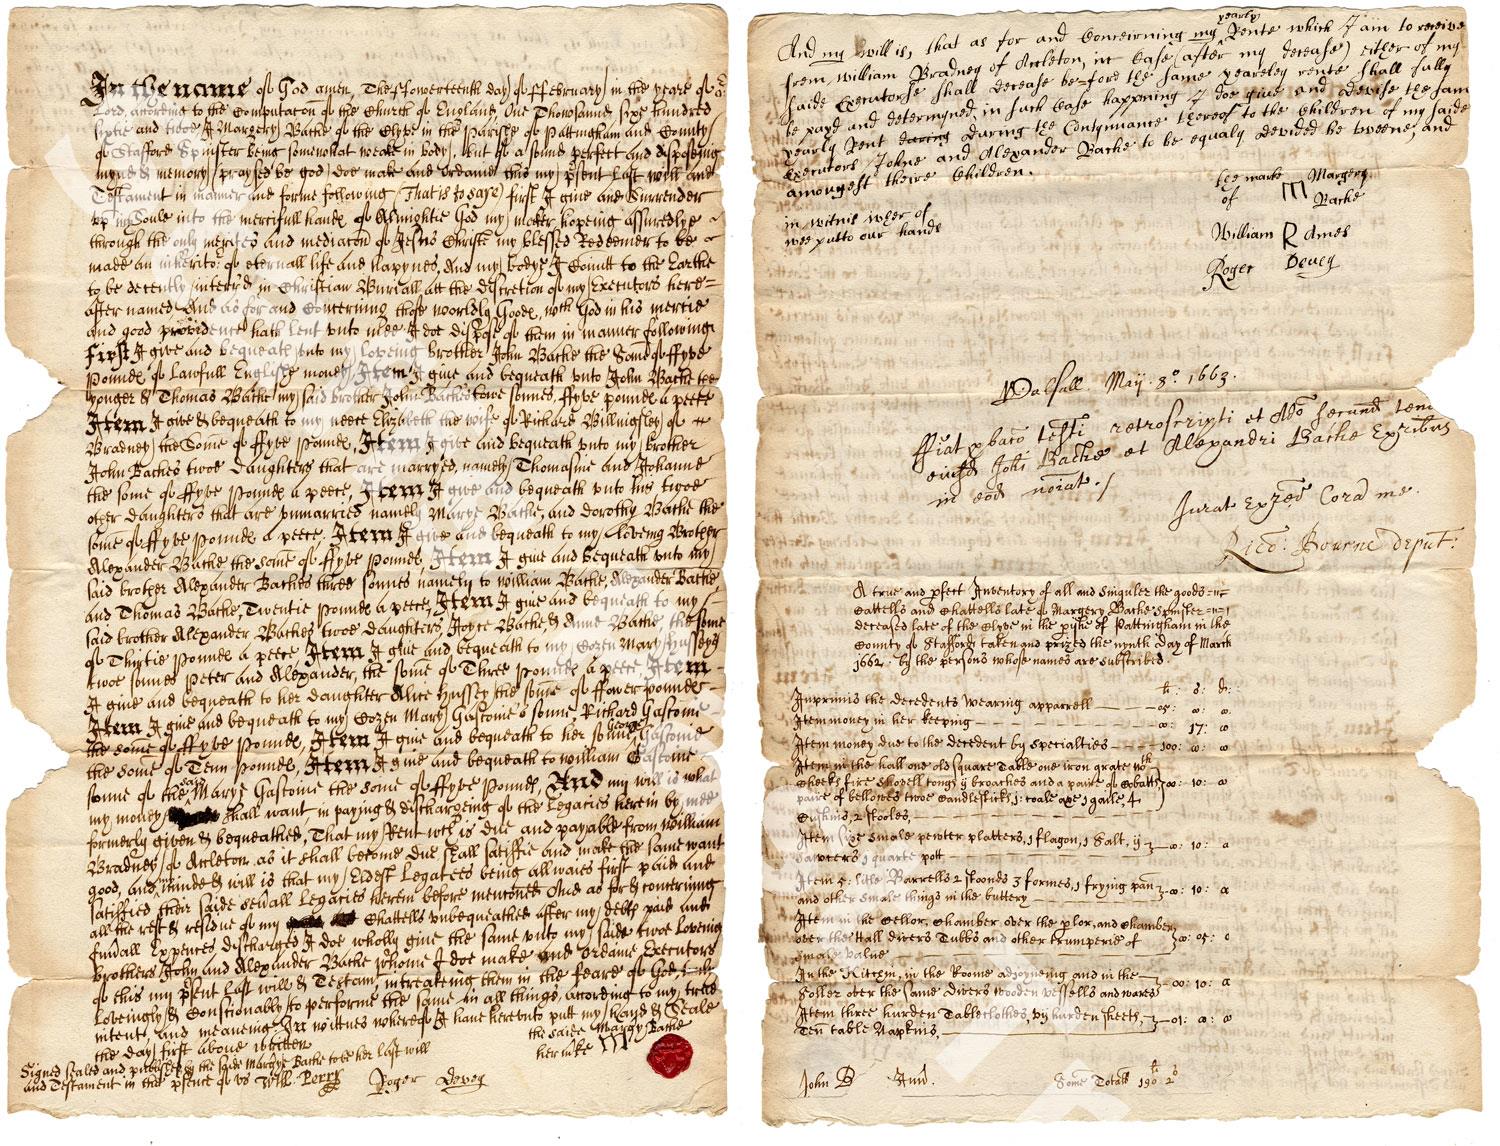 In the name of God amen, The ffowerteenth day of ffebruary in the yeare of or
Lord, according to the Computation of the Church of England, One Thowsannd Six hundred
Sixtie and twoe I Margery Bache of the Clyve in the Parishe of Pattingham and County
of Stafford Spinster being somewhat weake in body, but of a sound perfect and disposing
mynde & memory, praysed be god, doe make and ordeine this my psent last will and
Testament in manner and forme following (That is to saye) first I give and Surrender
vp my Soule into the mercifull hande of Almightie God my maker hopeing assuredlye
through the only merites and mediaton of Jesus Christe my blessed Redeemer to be
made an inheritor of eternall life and happynes, And my bodye I Comitt to the Earthe
to be decently interred in Christian Buriall att the discretion of my Executors here=
after named And as for and Concerning those worldly Goode, wch God in his mercie
and good providence hath lent vnto mee I doe dispose of them in manner following
First I give and bequeath vnto my loveing brother John Bache the Some of ffyve
Pounde of Lawfull Englishe money Item I give and bequeath vnto John Bache the
yonger & Thomas Bache my said brother John Baches twoe sonnes, ffyve pound a peece
Item I give & bequeath to my neece Elizabeth the wife of Richard Billingsley of
Bradney the Some of ffyve Pounde, Item I give and bequeath vnto my brother
John Baches twoe Daughters that are marryed, namely Thomasine and Johanne
the some of ffyve Pound a peece, Item I give and bequeath vnto his twoe
other daughters that are vnmarried namely Marye Bache, and dorothy Bache the
some of ffyve Pound a peece. Item I give and bequeath to my Loveing Brother
Alexander Bache the some of ffyve Pounde, Item I give and bequeath vnto my
said brother Alexander Baches three sonnes namely to william Bache, Alexander Bache
and Thomas Bache, Twentie Pound a peece, Item I give and bequeath to my
said brother Alexander Baches twoe daughters, Joyce Bache, & Anne Bache the some
of Thirtie Pound a peece Item I give and bequeath to my Cozen Mary Husseys
twoe sonnes Peter and Alexander, the some of Three Pounde a peece, Item
I give and bequeath to her daughter Alice Hussey the some of ffower pounde
Item I give and bequeath to my Cozen Mary Gastome's sonne, Richard Gastome
the some of ffyve Pounde, Item I give and bequeath to her sonne George Gastome
the some of Tenn Pounde, Item I give and bequeath to william Gastome
sonne of the said Marye Gastome the some of ffyve Pounde, And my will is what
my money shall want in paying & dischargeing of the Legacies herein by mee
formerly Given & bequeathed, That my Rent wch is due and payable from william
Bradney of Ackleton as it shall become due shall satisfie and make the same want
good, and my minde & will is that my Eldest Legatees being all waies first paid and
satisfied their saide sevrall Legacies herein before mentoned And as for & concerning
all the rest & residue of my Chattells vnbequeathed after my debts paid and
funerall Expences discharged I doe wholly give the same vnto my saide twoe Loveing
brothers John and Alexander Bache whome I doe make and ordeine Executors
of this my psent Last will & Testamt, intreating them in the feare of God,
Loveingly & Consionably to performe the same in all things, according to my true
intent, and meaneing In wittnes whereof I have herevnto putt my hand & Seale
the day first above written
the saide Margy Bache
her m ke
Signed sealed and published by the saide Margye Bache to be her last will
and Testament in the psence of vs Will: Perry Roger Devey
And my will is, that as for and Concerning my yearly Rente which I am to receive
from william Bradney of Ackleton, in Case (after my decease) either of my
saide Executorse shall decease be=ford the same yeareley rente shall fully
be payd and determyned, in such Case happning I doe give and devise the sam
yearly Rent during the Contynuance thereof to the Children of my saide
Executors Johne and Alexander Bache to be equaly devided be tweene, and
amongest theire Children.
in witnis wher of
wee putto our hands
the mark M Margery
of Bache
William R Ames
Roger Devey
Walsall May. 8o. 1663.
ffiat pbaco testi retroscripti et Adco secund tem
eiusd Johi Bache et Alexandri Bache Exribus
in eod noiat. /
Jurat Ex Cora me.
Ricd: Bourne deput:
A true and pfect Inventory of all and singuler the goods
Cattells and Chattells late of Margery Bache Spinster
deceased late of the Clyve in the pishe of Pattingham in the
County of Stafford taken and prized the nynth day of March
1662. by the persons whose names are subscribed.
li: s: d:
Inprimis the decedents wearing apparrell — 05: 00: 00
Item money in her keeping — 00: 17: 00
Item money due to the decedent by specialties — 100: 00: 00
Item in the hall one old square Table one iron grate wth
Cheeks fire shovell tongs ij broaches and a paire of Cobatts 00: 10: 00
paire of bellowes twoe Candlesticks, 1: 1 4
Cushins, 2 stooles,
Item sixe smale pewter platters, 1 flagon, 1 Salt, ij 00: 10: 0
sawcers 1 quarte pott
Item 5: litle Barrells 2 3 formes, 1 frying pan 00: 10: 0
and other smale things in the buttery
Item in the Cellor, Chamber over the plor, and Chamber
over the Hall divers Tubbs and other trumperie of 00: 05: 0
smale value
In the Kitchin, in the Roome adjoyneing and in the 00: 10: 0
Soller over the same divers wooden vessells and wares
Item three hurden Tableclothes, vij hurden sheets, 01: 0: 0
Ten table Napkins,
John B Jun. Some Totall 190 2